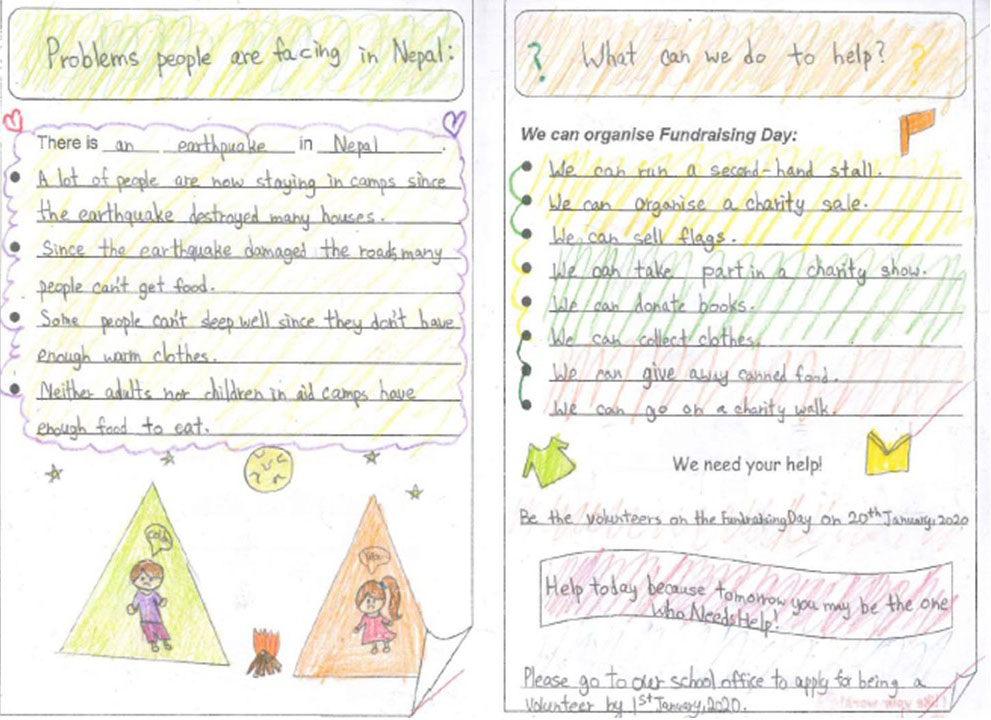 Problems people are facing in Nepal:
There is an earthquake in Nepal.
A lot of people are now staying in camps since
the earthquake destroyed many houses.
Since the earthquake damaged the roads, many
people can't get food.
Some people can't sleep well since they don't have
enough warm clothes.
Neither adults nor children in aid camps have
enough food to eat.
Cold
? What can we do to help? ?
We can organise Fundraising Day:
We can run a second-hand stall.
We can organise a charity sale.
We can sell flags.
We can take part in a charity show.
We can donate books.
We can collect clothes.
We can give away canned food.
We can go on a charity walk.
We need your help!
Be the volunteers on the Fundraising Day on 20th January, 2020
Help today because tomorrow you may be the one
Who Needs Help!
Please go to our school office to apply for being a
volunteer by 1st January, 2020.